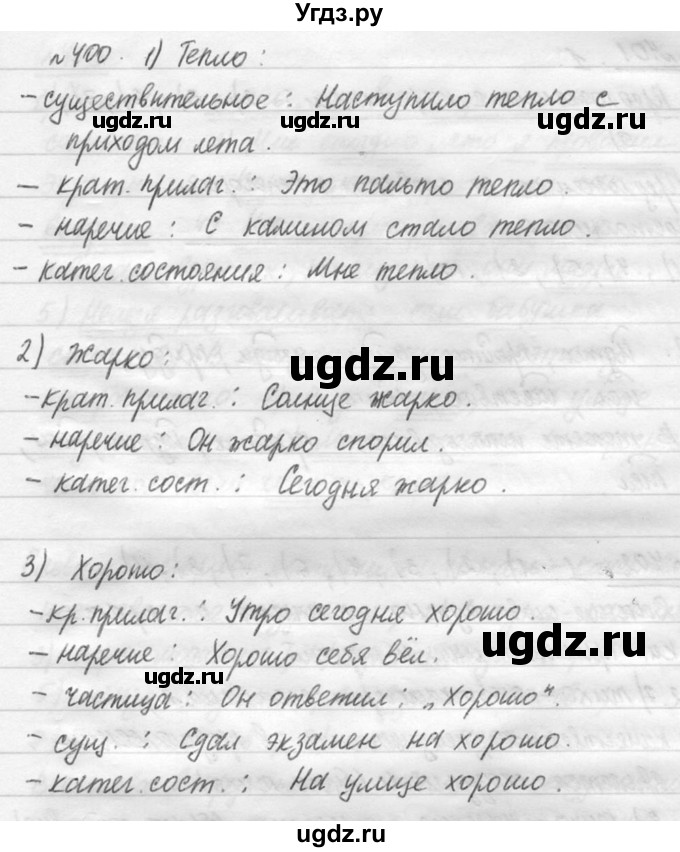 Угдз.ру
№400. 1) Тепло:
- существительное: Наступило тепло с
ugdz.ru ugdz.ru ugdz.ru
приходом лета.
- крат. прилаг.: Это пальто тепло.
- наречие: С камином стало тепло.
ugdz.ru ugdz.ru
- катег. состояния: Мне тепло.
2) Жарко:
ugdz.ru
- крат. прилаг.: Солнце жарко.
- наречие: Он жарко спорил.
ugdz.ru
- катег. сост.: Сегодня жарко.
3) Хорошо:
- кр. прилаг.: Утро сегодня хорошо.
ugdz.ru
- наречие: Хорошо себя вёл.
ugdz.ru
- частица: Он ответил: „Хорошо".
- сущ.: Сдал экзамен на хорошо.
ugdz.ru ugdz.ru
- катег. сост.: На улице хорошо.
ugdz.ru